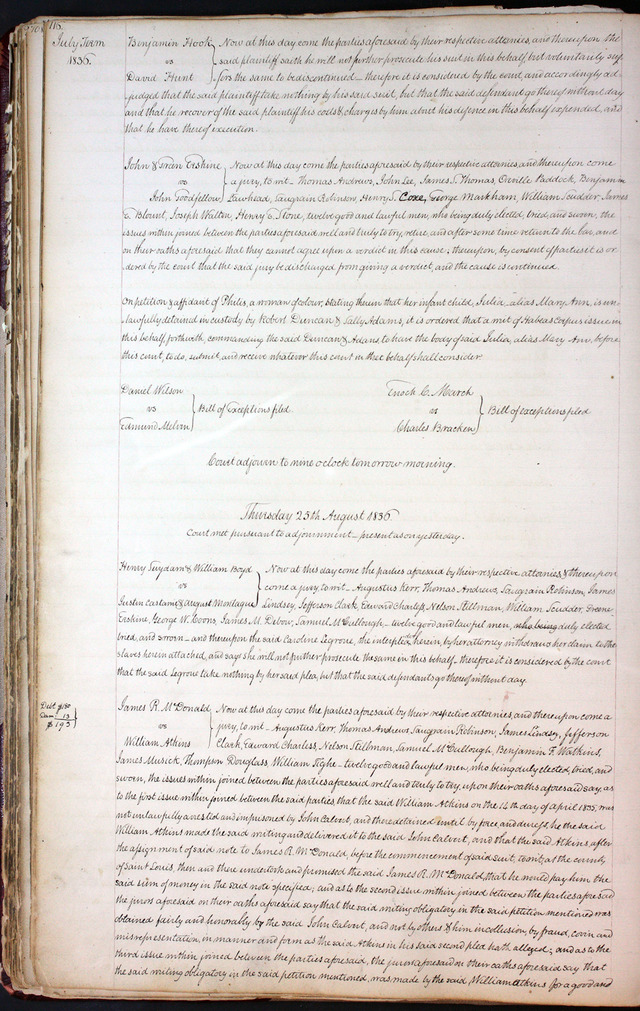 116.
July Term
1836.
Benjamin Hook
vs
David Hunt
Now at this day come the parties aforesaid by their respective attornies, and thereupon the
said plaintiff saith he will not further prosecute his suit in this behalf but voluntarily suf
fers the same to be discontinued – therefore it is considered by the court, and accordingly ad
judged that the said plaintiff take nothing by his said suit, but that the said defendant go thereof without day
and that he recover of the said plaintiff his costs & charges by him about his defence in this behalf expended, and
that he have thereof execution.
John & Green Erskine
vs
John Goodfellow
Now at this day come the parties aforesaid by their respective attornies, and thereupon come
a jury, to wit – Thomas Andrews, John Lee, James S. Thomas, Orville Paddock, Benjamin
Lawhead, Laugrain Robinson Henry S. Coxe, George Markham, William Scudder, James
E. Blount, Joseph Walton, Henry C. Stone, twelve good and lawful men, who being duly elected, tried, and sworn, the
issues within joined between the parties aforesaid well and truly to try, retire, and after some time return to the bar, and
on their oaths aforesaid that they cannot agree upon a verdict in this cause; thereupon, by consent of parties it is or
dered by the court that the said jury be discharged from giving a verdict, and the cause is continued.
On petition & affidavit of Phelis, a woman of colour, stating therein that her infant child, Julia – alias Mary Ann, is un
lawfully detained in custody by Robert Duncan & Sally Adams, it is ordered that a writ of Habeas Corpus issue in
this behalf, forthwith, commanding the said Duncan & Adams to have the body of said Julia, alias Mary Ann, before
this court, to do, submit, and receive whatever this court in that behalf shall consider.
Daniel Wilson
vs
Edmund Melvin
Bill of Exceptions filed
Enoch C. March
vs
Charles Bracken
Bill of exceptions filed
Court adjourn to nine o'clock tomorrow morning.
Thursday 25th August 1836
Court met pursuant to adjournment – present as on yesterday.
Henry Suydam & William Boyd
vs
Gustin Castaml & August Montague
Now at this day come the parties aforesaid by their respective attornies, & thereupon
come a jury, to wit – Augustus Kerr, Thomas Andrews, Laugrain Robinson, James
Lindsey, Jefferson Clark, Edward Charless, Nelson Stillman, William Scudder, Greene
Erskine, George W. Coons, James M. Debow, Samuel McCullough – twelve good and lawful men, who being duly elected
tried, and sworn – and thereupon the said Caroline Legrove, the interpleader herein, by her attorney withdraws her claim to the
slaves herein attached, and says she will not further prosecute the same in this behalf – therefore it is considered by the court
that the said Legrove take nothing by her said plea, but that the said defendants go thereof without day.
Debt $180
Dam. 13
$193
James R. McDonald
vs
William Atkins
Now at this day come the parties aforesaid by their respective attornies, and thereupon come a
jury, to wit – Augustus Kerr, Thomas Andrews, Laugrain Robinson, James Lindsey, Jefferson
Clark, Edward Charless, Nelson Stillman, Samuel McCullough, Benjamin F. Watkins,
James Musick, Thompson Douglass, William Tighe – twelve good and lawful men, who being duly elected, tried, and
sworn, the issues within joined between the parties aforesaid well and truly to try, upon their oaths aforesaid say as
to the first issue within joined between the said parties, that the said William Atkins on the 14th day of April 1835, was
not unlawfully arrested and imprisoned by John Calvert, and there detained until by force and duress he the said
William Atkins made the said writing and delivered it to the said John Calvert, and that the said Atkins after
the assignment of said note to James R. McDonald, before the commencement of said suit, to wit, at the county
of Saint Louis, then and there undertook and promised the said James R. McDonald, that he would pay him the
said sum of money in the said note specified; and as to the second issue within joined between the parties aforesaid
the jurors aforesaid on their oaths aforesaid say that the said writing obligatory in the said petition mentioned was
obtained fairly and honorably by the said John Calvert, and not by others & him in collusion, by fraud, covin and
misrepresentation, in manner and form as the said Atkins in his said second plea hath alleged; and as to the
third issue within joined between the parties aforesaid, the jurors aforesaid on their oaths aforesaid say that
the said writing obligatory in the said petition mentioned, was made by the said William Atkins for a good and